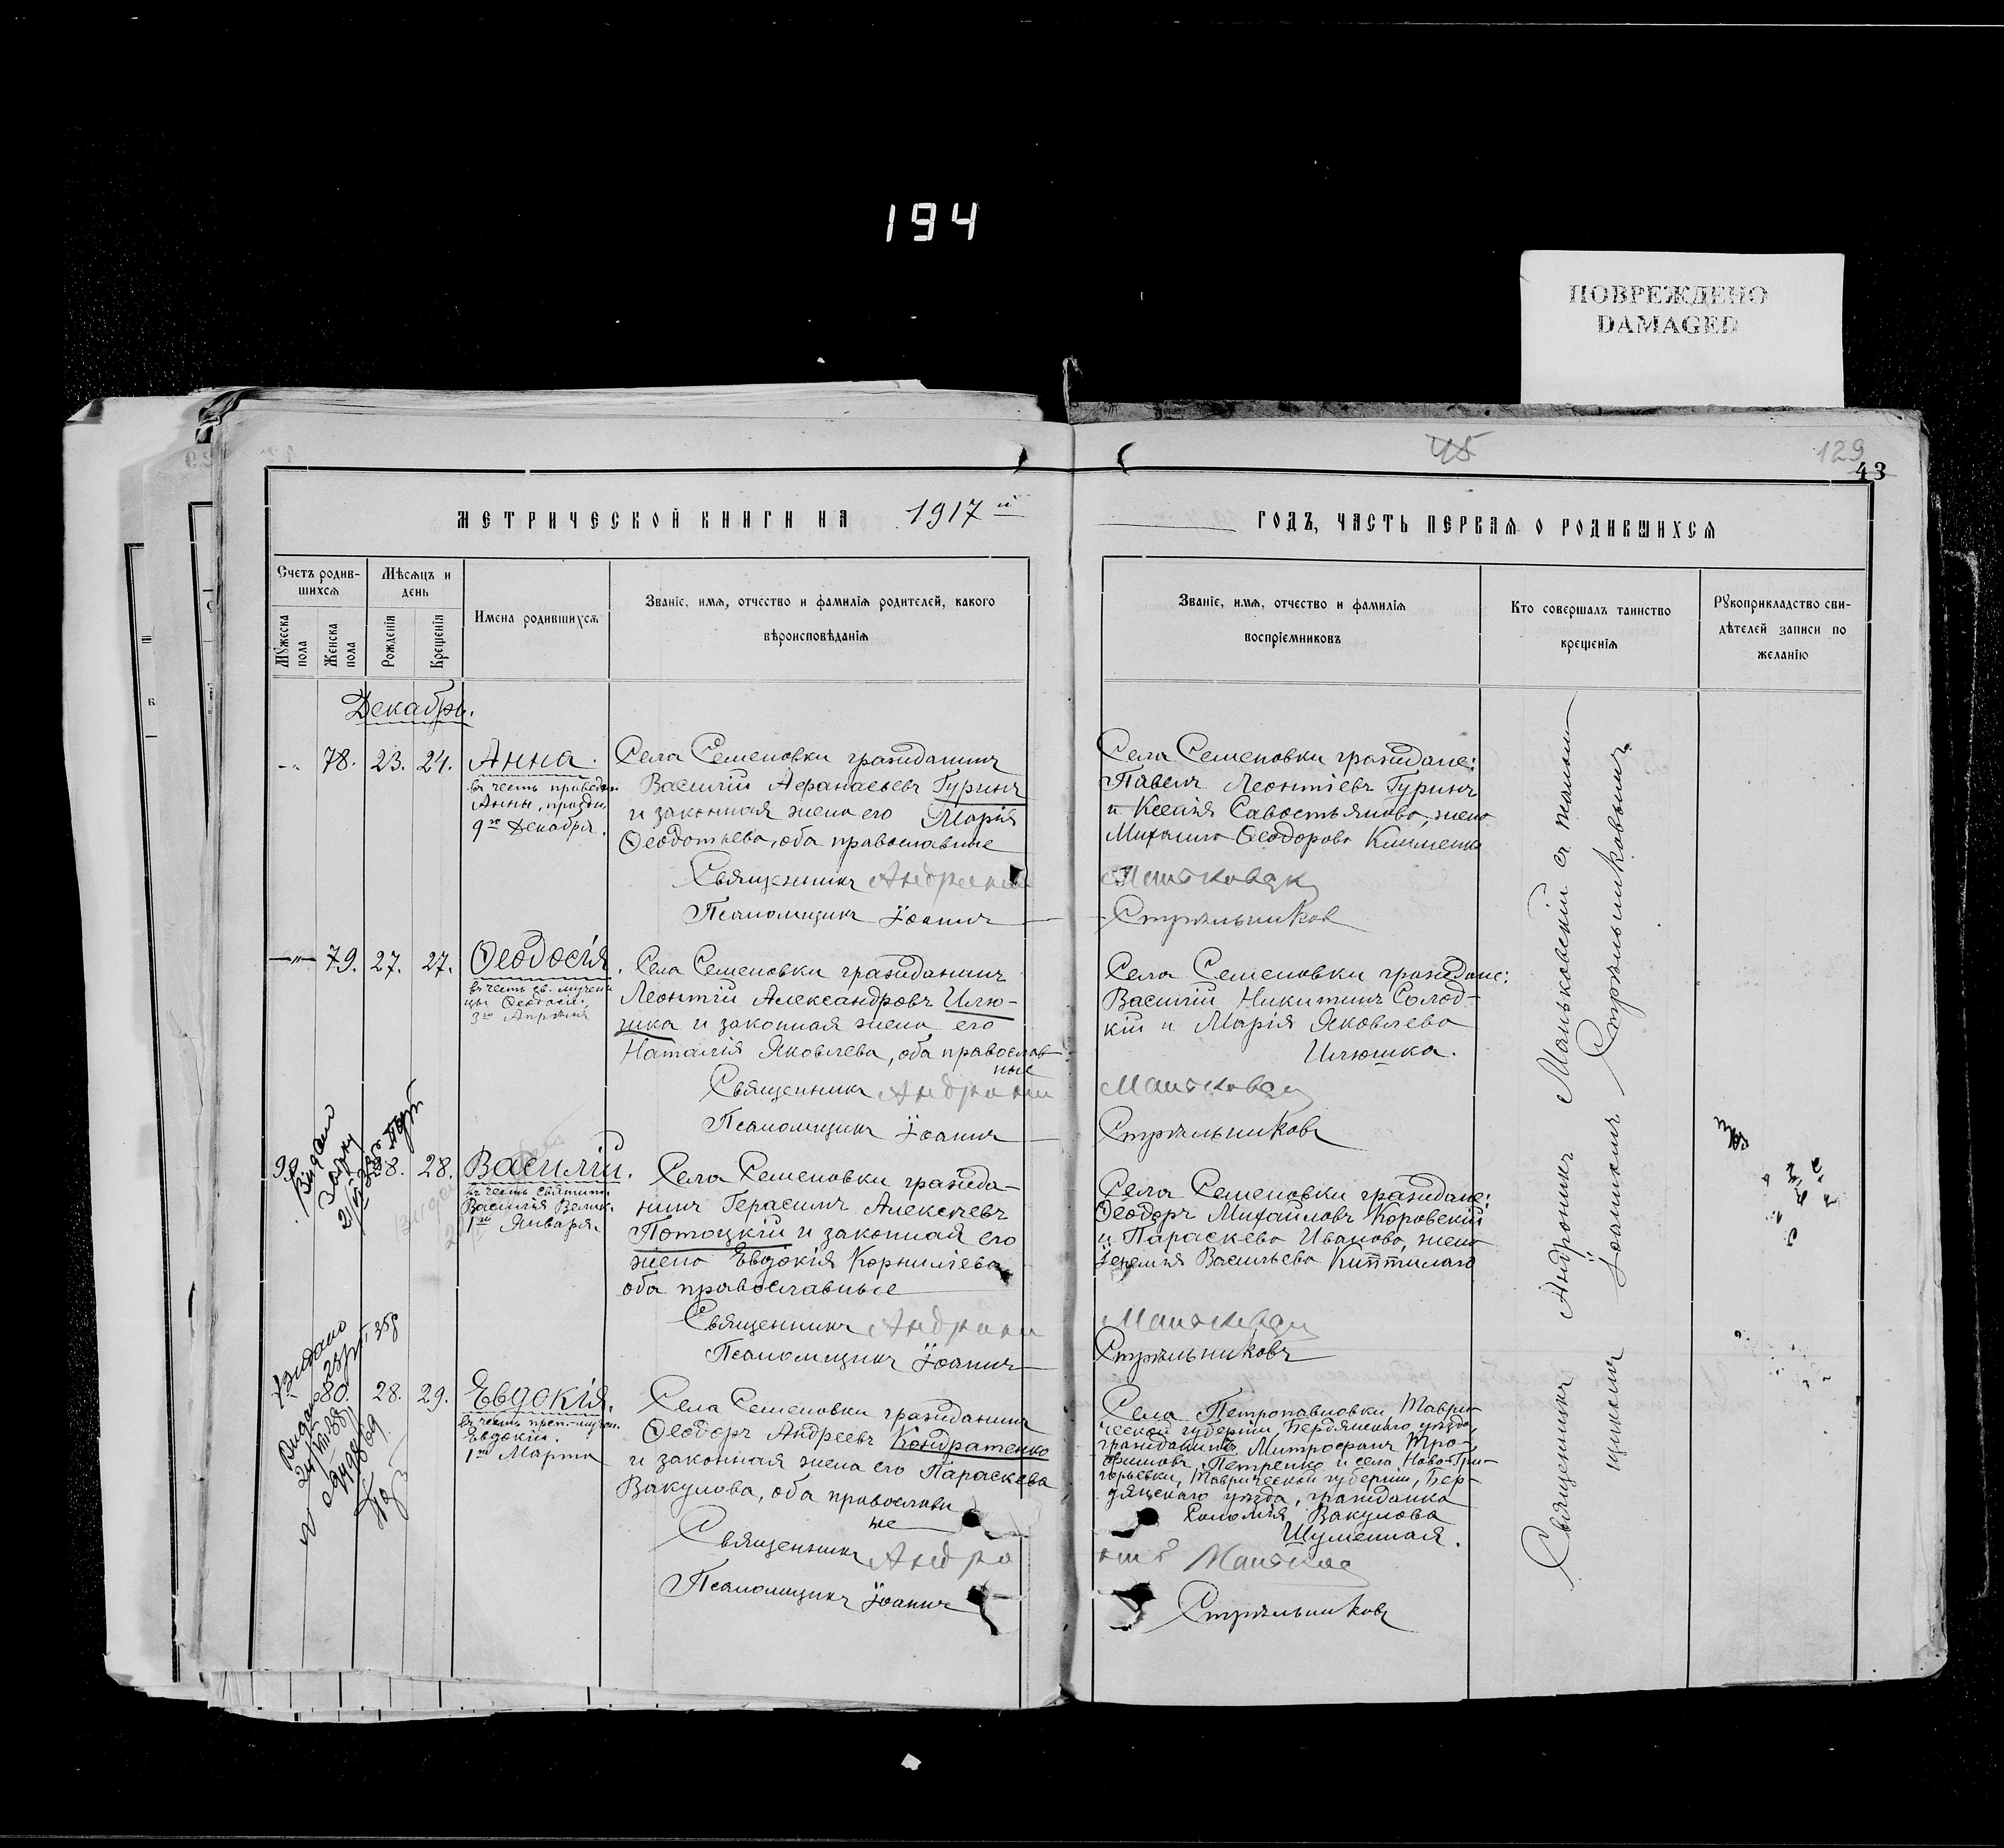 194
ПОВРЕЖДЕНО
DAMAGED
45
129
43
МЕТРИЧЕСКОЙ КНИГИ НА 1917й
ГОДЪ, ЧАСТЬ ПЕРВАЯ О РОДИВШИХСЯ
Счетъ родив-
шихся
Мужеска пола
Женска пола
Мѣсяцъ и
день
Рожденія
Крещенія
Имена родившихся
Званіе, имя, отчество и фамилія родителей, какого
вѣроисповѣданія
Званіе, имя, отчество и фамилія
воспріемниковъ
Кто совершалъ таинство
крещенія
Рукоприкладство сви-
дѣтелей записи по
желанію
Декабрь.
78. 23. 24. Анна.
въ честь праведн.
Анны, праздн.
9го Декабря.
Села Семеновки гражданинъ
Василій Афанасьевъ Гуринъ
и законная жена его Марія
Ѳеодотьева, оба православные
Священникъ
Псаломщикъ Іоаннъ
Села Семеновки граждане:
Павелъ Леонтіевъ Гуринъ
и Ксенія Савостьянова, жена
Михаила Ѳеодорова Клименка
Стрѣльников
79. 27. 27. Ѳеодосія.
въ честь св. мучени
цы Ѳеодосіи.
3го Апрѣля
Села Семеновки гражданинъ
Леонтій Александровъ Илю-
шка и законная жена его
Наталія Яковлева, оба православ
ные
Священникъ
Псаломщикъ Іоаннъ
Села Семеновки граждане:
Василій Никитинъ Солод-
кій и Марія Яковлева
Илюшка.
Стрѣльниковъ
28. 28. Василій.
въ честь святит.
Василія Велик.
1го Января.
Села Семеновки гражда-
нинъ Герасимъ Алексѣевъ
Потоцкій и законная его
жена Евдокія Корниліева
оба православные
Священникъ
Псаломщикъ Іоаннъ
Села Семеновки граждане:
Ѳеодоръ Михайловъ Коровскій
и Параскева Иванова, жена
Васильева
Стрѣльниковъ
80. 28. 29. Евдокія.
въ честь преп.-мучен.
Евдокіи.
1го Марта
Села Семеновки гражданинъ
Ѳеодоръ Андреевъ Кондратенко
и законная жена его Параскева
Вакулова, оба православн
ые
Священникъ
Псаломщикъ Іоаннъ
Села Петропавловки Таври-
ческой губерніи, Бердянскаго уѣзда,
гражданинъ Митрофанъ Тро-
фимовъ Петренко и села Ново-Гри-
горьевки, Таврической губерніи, Бер-
дянскаго уѣзда, гражданка
Соломія Вакулова
Шуменная.
Стрѣльниковъ
Священникъ Андроникъ Маньковскій съ псалом-
щикомъ Іоанномъ Стрѣльниковымъ.